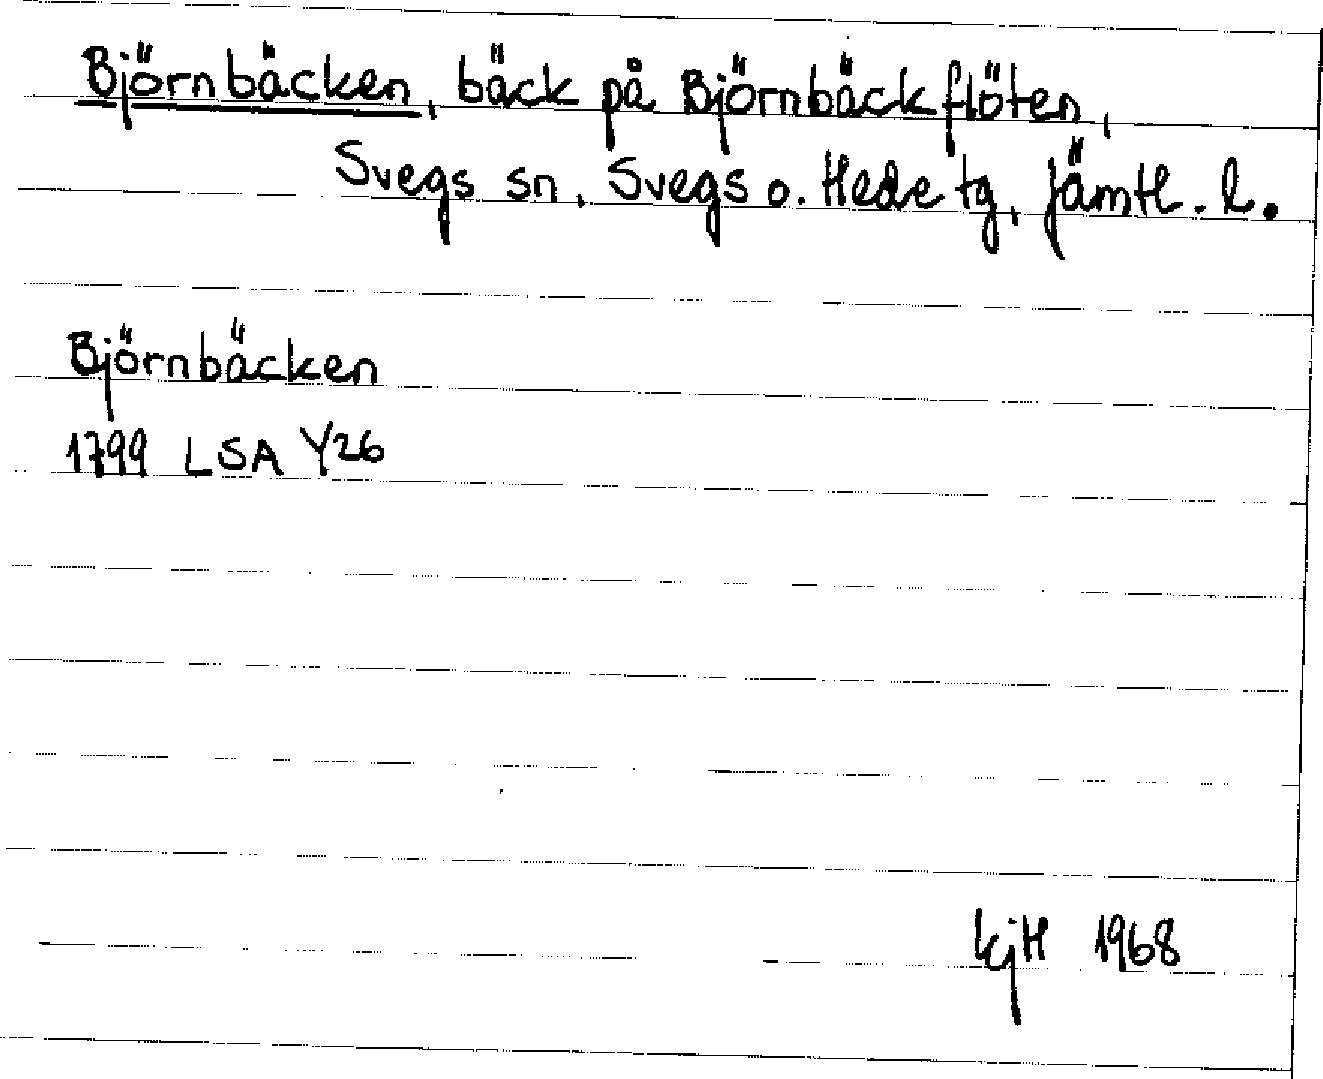 Björnbäcken, bäck på Björnbäckflöten,
Svegs sn, Svegs o. Hede tg, Jämtl. l.
Björnbäcken
1799 LSA Y26
kjH 1968